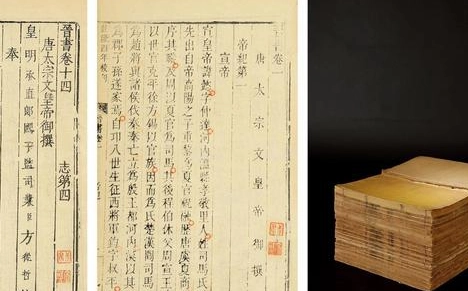 晉書卷一
唐太宗文皇帝御撰
帝紀第一
宣帝
宣皇帝諱懿字仲達河內溫縣孝敬里人姓司馬氏
先出自帝高陽之子重黎爲夏官祝融歷唐虞夏商
序其職及周以夏官爲司馬其後程伯休父周宣王
以世官克平徐方錫以官族因而爲氏楚漢間司馬
爲趙將與諸侯伐秦秦亡立爲殷王都河內漢以其
爲郡子孫遂家焉自卬八世生征西將軍鈞字叔平
晉書卷十四 志第四
唐太宗文皇帝御撰
皇明承直郎國子監司業臣方從哲
奉